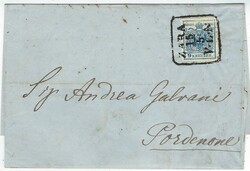 ZARA
Sig Andrea Galvani
Pordenone